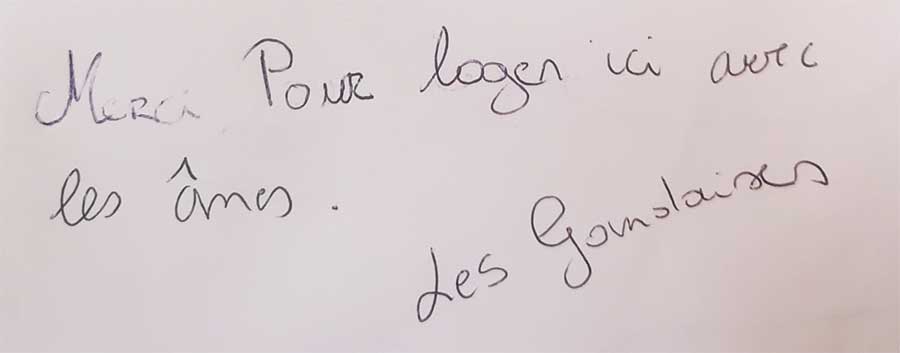 Merci Pour loger ici avec
les ânes.
Les Gamolaises